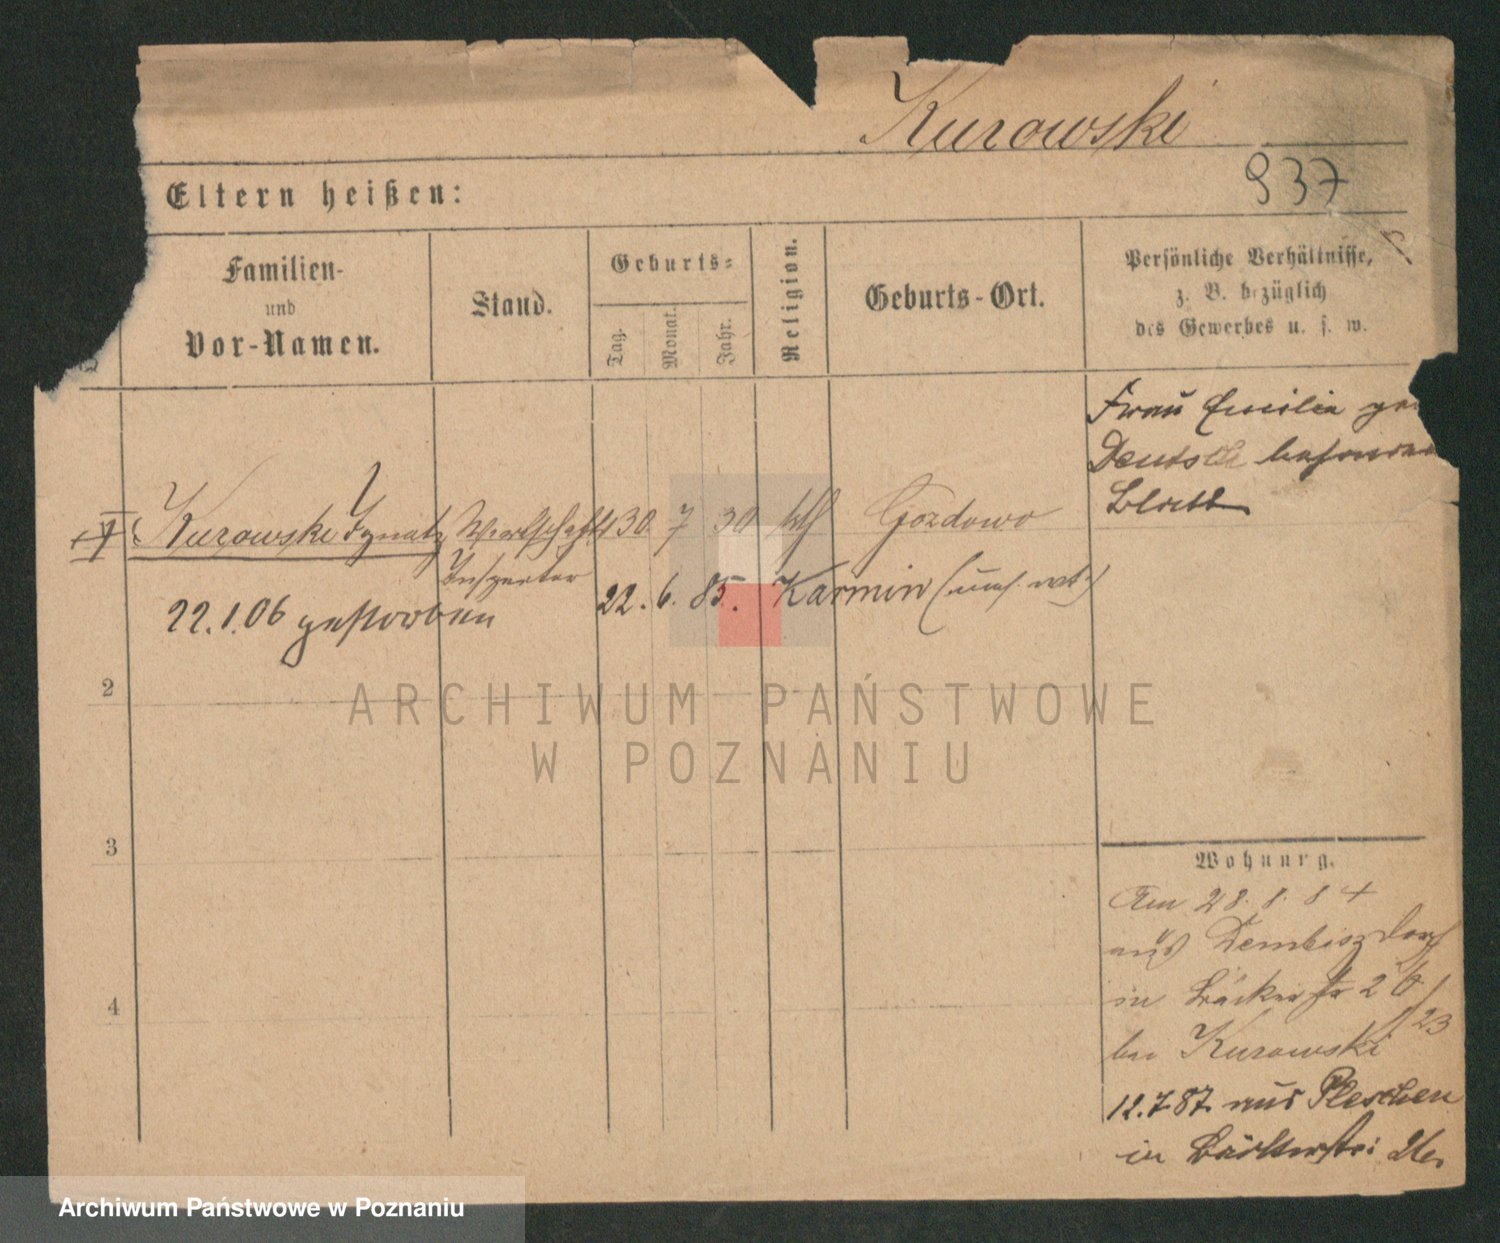 Kurowski
937
Eltern heißen:
Familien-
und
Vor-Namen.
Stand.
Geburts-
Tag.
Monat.
Jahr.
Religion.
Geburts-Ort.
Persönliche Verhältnisse,
z. B. bezüglich
des Gewerbes u. s. w.
Frau Emilia
Deutsch besonderes
Blatt
Kurowski Ignatz Wirtschafts 30 7 30 kth Gozdowo
Inspector
22.1.06 gestorben
22. 6. 85. Karmin
2
3
4
Wohnung.
Am 28. 8. 84
aus Dembiczdorf
in Bäckerstr 26/23
bei Kurowski
12.7.87. aus Pleschen
in Bäckerstr: 26.
ARCHIWUM PAŃSTWOWE
W POZNANIU
Archiwum Państwowe w Poznaniu